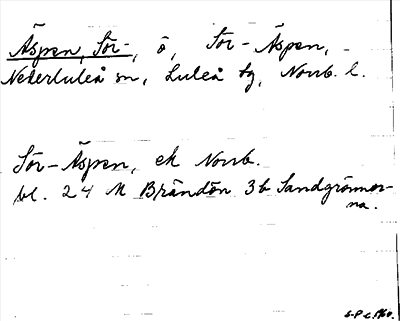 Äspen, Sör-, ö, Sör-Äspen,
Nederluleå sn, Luleå tg, Norrb. l.
Sör-Äspen, ek Norrb.
bl. 24 M Brändön 3b Sandgrönnor-
na.